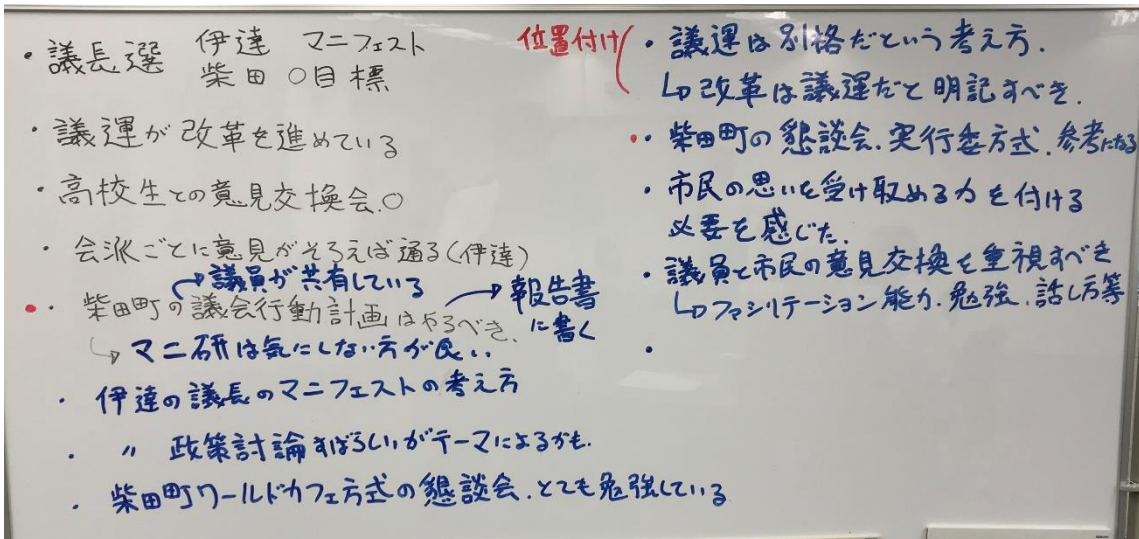 ・議長選 伊達 マニフェスト
柴田 ○目標
・議運が改革を進めている
・高校生との意見交換会.○
・会派ごとに意見がそろえば通る(伊達)
→議員が共有している
・柴田町の議会行動計画はやるべき.
→報告書
に書く
↳マニ研は気にしない方が良い.
・伊達の議長のマニフェストの考え方
・〃 政策討論すばらしいがテーマによるかも.
・柴田町ワールドカフェ方式の懇談会.とても勉強している
位置付け
・議運は別格だという考え方.
↳改革は議運だと明記すべき.
・柴田町の懇談会.実行委方式.参考になる
・市民の思いを受け取める力を付ける
必要を感じた.
・議員と市民の意見交換を重視すべき
↳ファシリテーション能力.勉強.話し方等
・